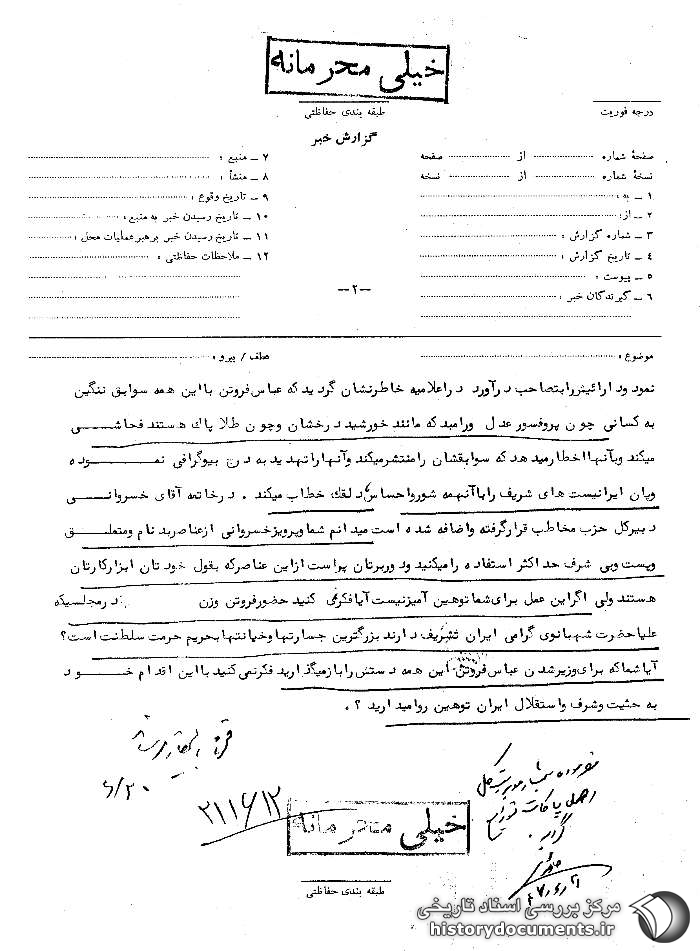 خیلی محرمانه
طبقه بندی حفاظتی
درجه فوریت
گزارش خبر
صفحهٔ شماره از صفحه
نسخهٔ شماره از نسخه
۱ ـ به :
۲ ـ از:
۳ ـ شماره گزارش :
۴ ـ تاریخ گزارش :
۵ ـ پیوست :
۶ ـ گیرندگان خبر :
۷ ـ منبع :
۸ ـ منشأ :
۹ ـ تاریخ وقوع :
۱۰ ـ تاریخ رسیدن خبر به منبع :
۱۱ ـ تاریخ رسیدن خبر برهبر عملیات محل :
۱۲ ـ ملاحظات حفاظتی :
--۲--
موضوع :
عطف / پیرو :
نمود ود ارائیش رابتصاحب د رآورد د راعلامیه خاطرنشان گردید که عباس فروتن با این همه سوابق ننگین
به کسانی چون پروفسور عدل ورامبد که مانند خورشید د رخشان وچون طلا پاک هستند فحاشی
میکند وبآنها اخطار مید هد که سوابقشان را منتشر میکند وآنها را تهدید به د رج بیوگرافی نموده
وپان ایرانیست های شریف را با آنهمه شورواحساس د لقک خطاب میکند . د رخاتمه آقای خسروانی
د بیرکل حزب مخاطب قرارگرفته واضافه شده است مید انم شما وپرویز خسروانی ازعناصر بد نام ومتملق
وپست وبی شرف حد اکثر استفاده را میکنید ود وربرتان پراست ازاین عناصر که بقول خود تان ابزار کارتان
هستند ولی اگر این عمل برای شما توهین آمیز نیست آیا فکر نمی کنید حضور فروتن وزن د رمجلسیکه
علیاحضرت شهبانوی گرامی ایران تشریف د ارند بزرگترین جسارتها وخیانتها بحریم حرمت سلطنت است؟
آیا شما که برای وزیر شدن عباس فروتن این همه د ستش را باز میگذارید فکر نمی کنید با این اقدام خود
به حثیت وشرف واستقلال ایران توهین روا مید ارید ؟ .
۶/۳۰
۲۱۱۶۱۲
خیلی محرمانه
طبقه بندی حفاظتی
مرکز بررسی اسناد تاریخی
historydocuments.ir